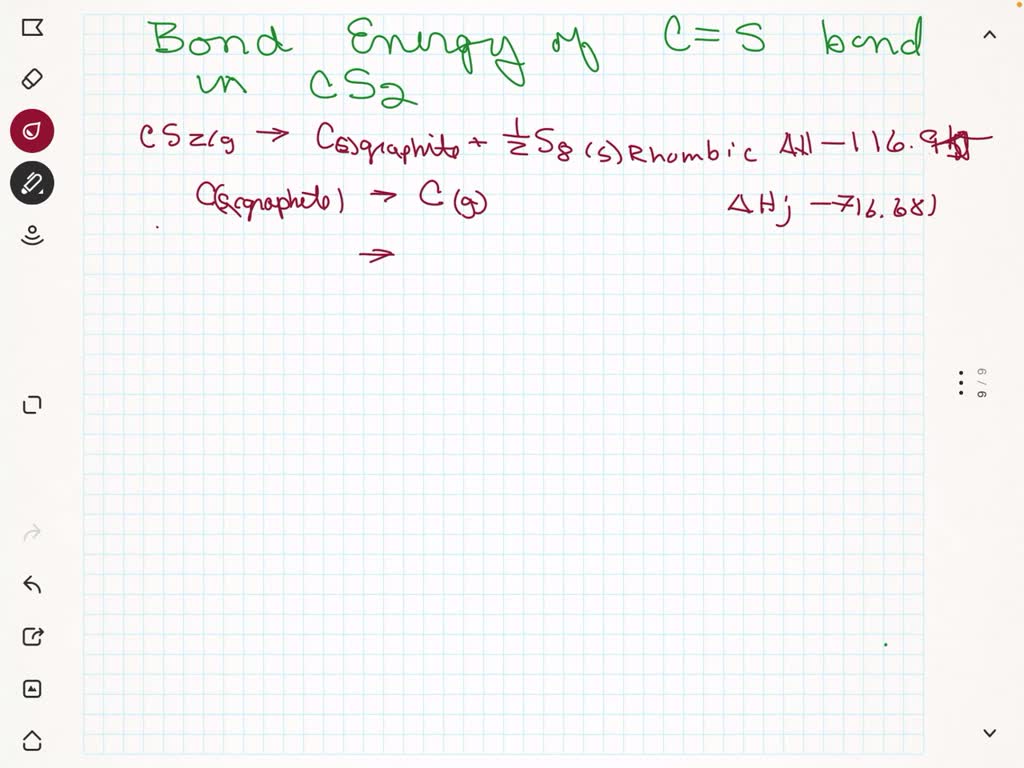 Bond Energy of C=S bond
in CS2
CS2(g → C(s)graphite + 1/2 S8(s) Rhombic ΔH -116.9
C(s,graphite) → C(g) ΔHj -716.681
→
6/6